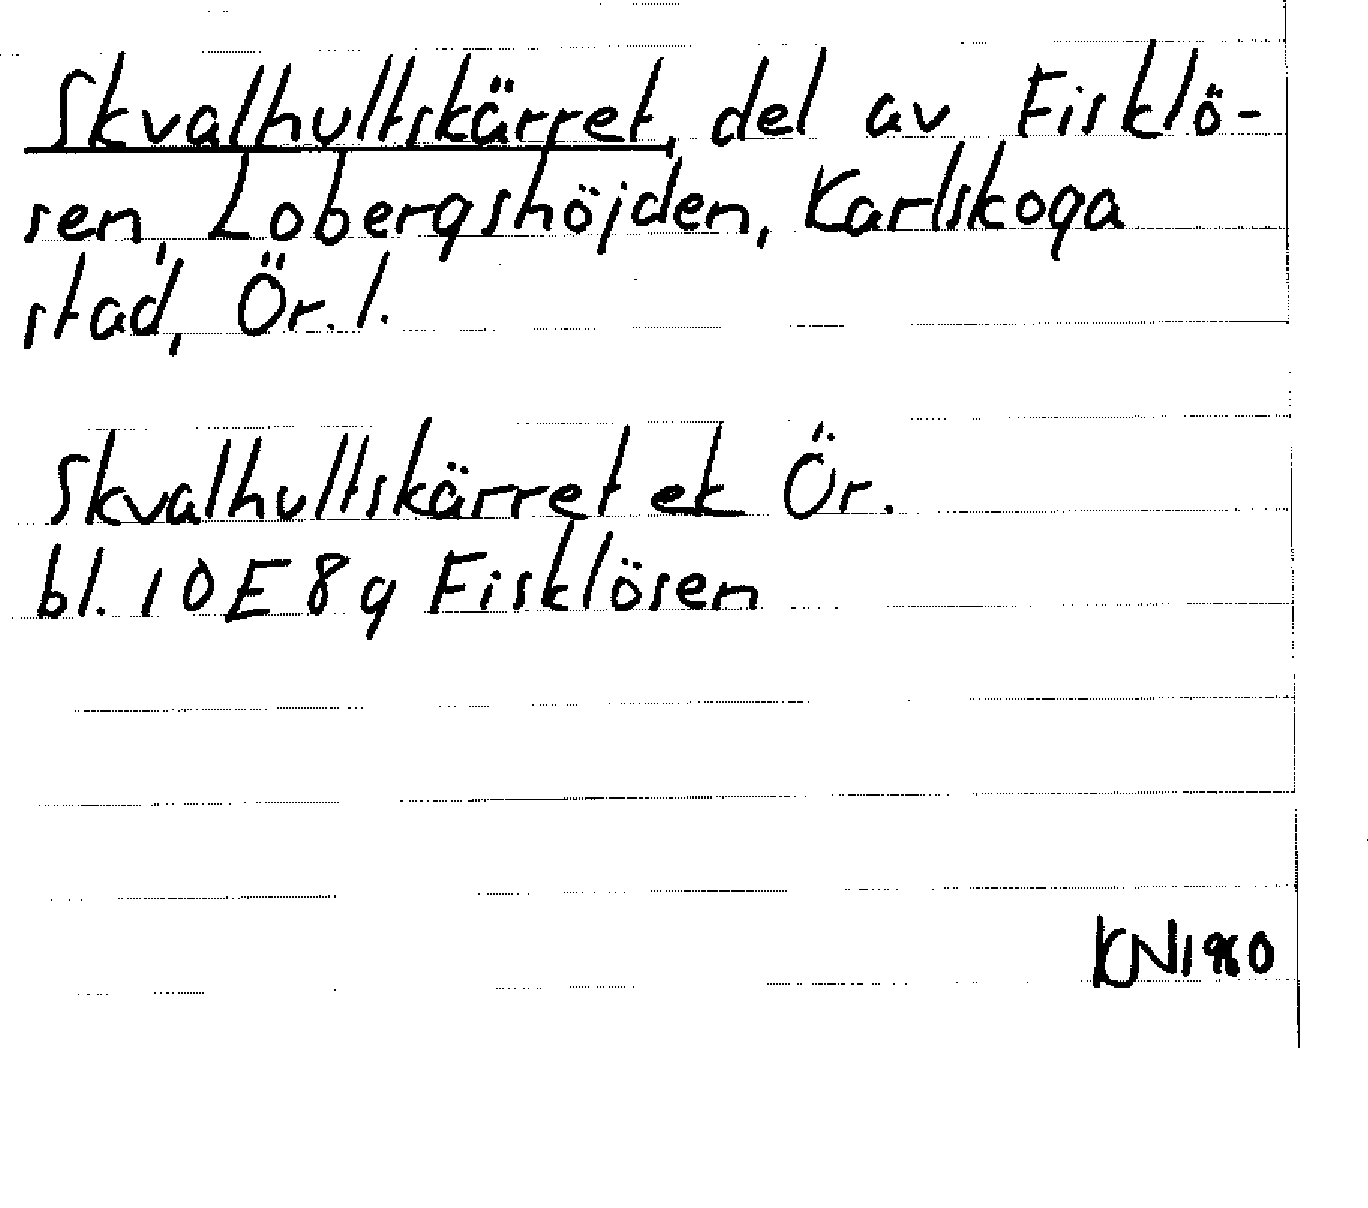 Skvalhultskärret, del av Fisklö-
sen, Lobergshöjden, Karlskoga
stad, Ör. l.
Skvalhultskärret ek Ör.
bl. 10E8g Fisklösen
KN1980